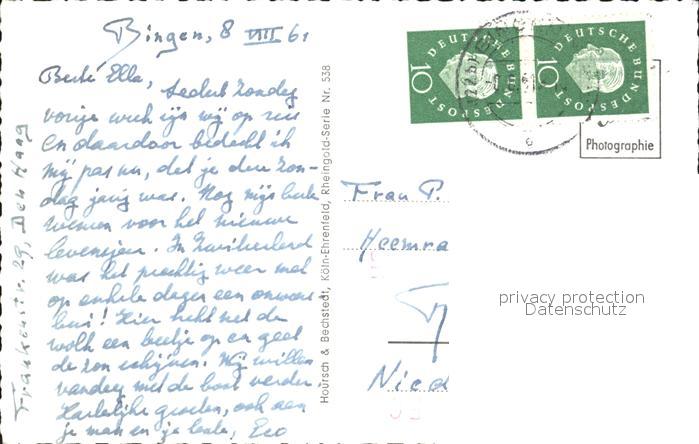 Bingen, 8 VIII 61
Beste Ella,
sedert Zondag
vorige week zijn wij op reis
en daardoor bedacht ik
mij pas nu, dat je deze Zon-
dag jarig was. Nog mijn beste
wensen voor het nieuwe
levensjaar. In Zwitserland
was het prachtig weer met
op enkele dagen een onweers-
bui! Hier trekt net de
wolk een beetje op en gaat
de zon schijnen. Wij willen
vandaag met de boot verder.
Hartelijke groeten, ook aan
je man en je
Frankenstr. 29, Den Haag
Hoursch & Bechstedt, Köln-Ehrenfeld, Rheingold-Serie Nr. 538
10 DEUTSCHE BUNDESPOST
10 DEUTSCHE BUNDESPOST
Photographie
Frau P.
Heemra
Nied
privacy protection
Datenschutz